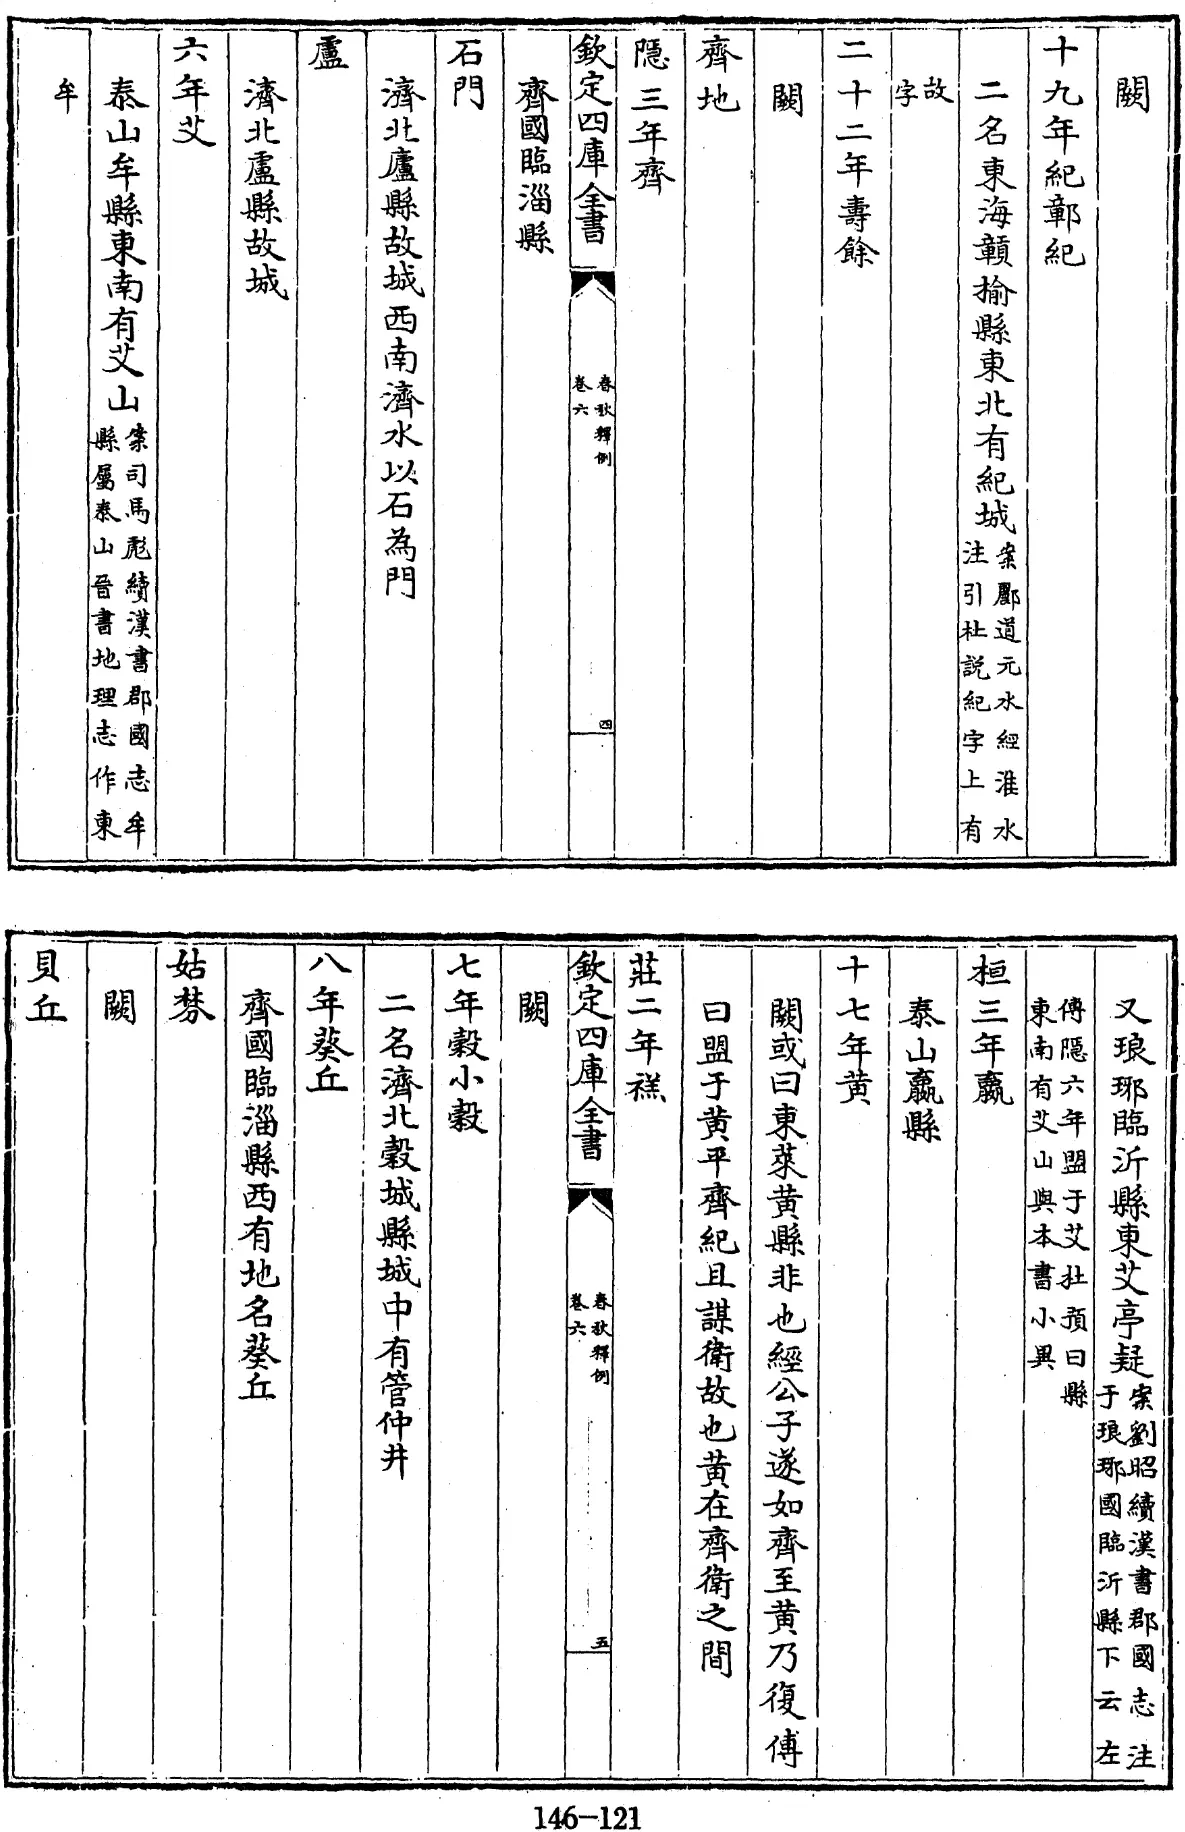 闕
十九年紀鄣紀
二名東海贛榆縣東北有紀城案酈道元水經淮水
注引杜説紀字上有
故
字
二十二年壽餘
闕
齊地
隠三年齊
欽定四庫全書
春秋釋例
卷六
四
齊國臨淄縣
石門
濟北廬縣故城西南濟水以石為門
盧
濟北盧縣故城
六年艾
泰山牟縣東南有艾山案司馬彪續漢書郡國志牟
縣屬泰山晉書地理志作東
牟
又琅琊臨沂縣東艾亭疑案劉昭續漢書郡國志注
于琅琊國臨沂縣下云左
傳隠六年盟于艾杜預曰縣
東南有艾山與本書小異
桓三年嬴
泰山嬴縣
十七年黄
闕或曰東萊黄縣非也經公子遂如齊至黄乃復傳
曰盟于黄平齊紀且謀衛故也黄在齊衛之間
莊二年禚
欽定四庫全書
春秋釋例
卷六
五
闕
七年穀小穀
二名濟北穀城縣城中有管仲井
八年葵丘
齊國臨淄縣西有地名葵丘
姑棼
闕
貝丘
146-121